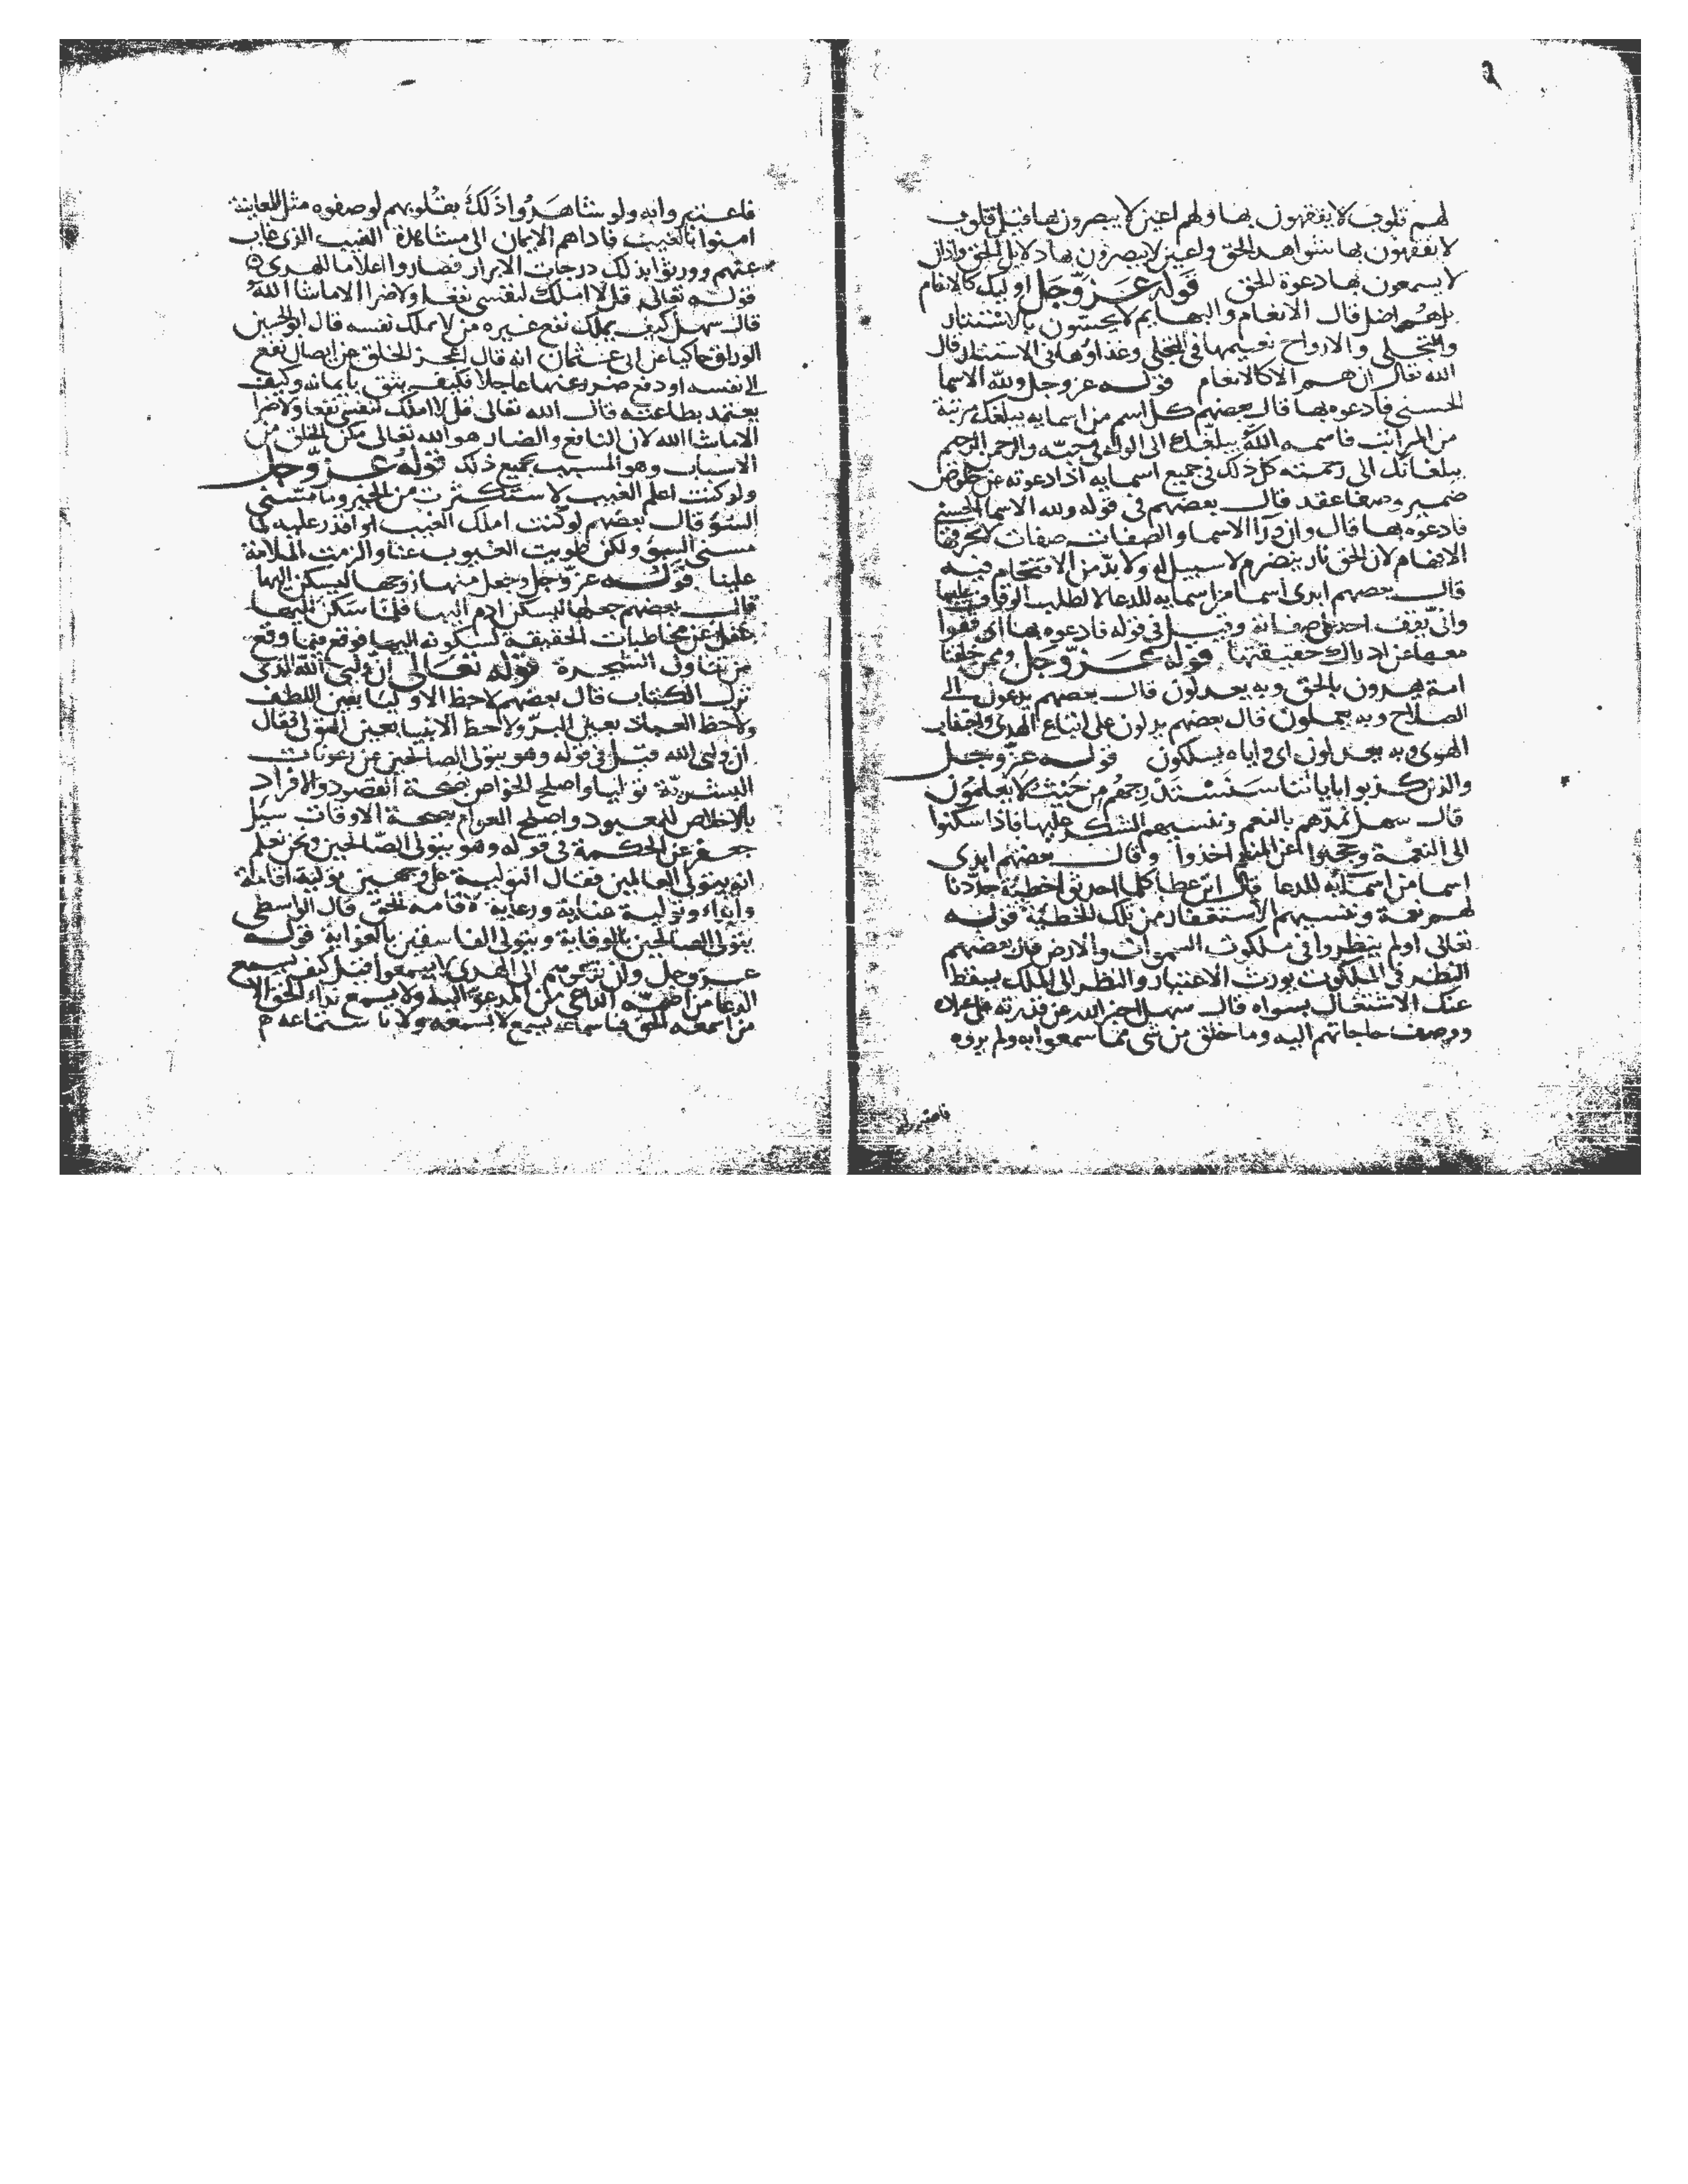 لهم قلوب لا يفقهون بها ولهم اعين لا يبصرون بها قيل قلوب
لا يفقهون بها شواهد الحق واعين لا يبصرون بها دلايل الحق واذان
لا يسمعون بها دعوة الحق قوله عز وجل اوليك كالانعام
بل هم اضل قال الانعام والبهايم لا يحسون بالاستتار
والتجلي والارواح نعيمها في التجلي وغذاوها في الاستتار قال
الله تعالى ان هم الا كالانعام قوله عز وجل ولله الاسما
الحسنى فادعوه بها قال بعضهم كل اسم من اسمايه يبلغك مرتبة
من المراتب فاسمه الله يبلغك الى الوله في حبه والرحمن الرحيم
يبلغانك الى رحمته كل ذلك في جميع اسمايه اذا دعوته عن خلوص
ضمير وصفا عقد قال بعضهم في قوله ولله الاسما الحسنى
فادعوه بها قال وان ورا الاسما والصفات صفات لا تخرقها
الافهام لان الحق نار يتضرم لا سبيل له ولا بد من الاقتحام فيه
قال بعضهم ابدى اسما من اسمايه للدعا لا لطلب الوقوف عليها
وانى يقف احد على صفاته وقيل في قوله فادعوه بها اي قفوا
معها عن ادراك حقيقتها قوله عز وجل وممن خلقنا
امة يهدون بالحق وبه يعدلون قال بعضهم يدعون الى
الصلاح وبه يعملون قال بعضهم يدلون على اتباع الهدى واجتناب
الهوى وبه يعدلون اي واياه يسلكون قوله عز وجل
والذين كذبوا باياتنا سَنَسْتَدْرِجهُم مِن حَيث لَا يَعلَمُون
قال سهل نمدهم بالنعم وننسيهم الشكر عليها فاذا سكنوا
الى النعمة وحجبوا عن المنعم اخذوا وقال بعضهم ابدى
اسما من اسمايه للدعا قال ابن عطا كلما احدثوا خطية جددنا
لهم نعمة وننسيهم الاستغفار من تلك الخطية قوله
تعالى اولم ينظروا في ملكوت السموات والارض قال بعضهم
النظر في الملكوت يورث الاعتبار والنظر الى الملك يسقط
عنك الاشتغال بسواه قال سهل اخبر الله عن قدرته
ووصف حاجاتهم اليه وما خلق من شي مما سمعوا به ولم يروه
فاعتبروا
فاعتبروا به ولو شاهدوا ذلك بقلوبهم لوصفوه مثل المعاينة
امنوا بالغيب فاداهم الايمان الى مشاهدة الغيب الذي غاب
عنهم وورثوا بذلك درجات الابرار فصاروا اعلاما للهدى
قوله تعالى قل لا املك لنفسي نفعا ولا ضرا الا ما شا الله
قال سهل كيف يملك نفع غيره من لا يملك نفسه قال ابو الحسين
الوراق حاكيا عن ابي عثمان انه قال اعجز الخلق عن ايصال نفع
الى نفسه او دفع ضر وعنها عاجلا فكيف يثق بايمانه وكيف
يعتمد بطاعته قال الله تعالى قل لا املك لنفسي نفعا ولا ضرا
الا ما شا الله لان النافع والضار هو الله تعالى مكن الخلق من
الاسباب وهو المسبب بجميع ذلك قوله عز وجل
ولو كنت اعلم الغيب لاستكثرت من الخير وما مسني
السو قال بعضهم لو كنت املك الغيب او اقدر عليه لما
مسني السو ولكن طويت الغيوب عنا والزمت الملامة
علينا قوله عز وجل وجعل منها زوجها ليسكن اليها
قال بعضهم جعلها ليسكن ادم اليها فلما سكن اليها
غفل عن مخاطبات الحقيقة لسكونه اليها فوقع فيما وقع
من تناول الشجرة قوله تعالى ان وليي الله الذي
نزل الكتاب قال بعضهم لاحظ الاوليا بعين اللطف
ولاحظ العباد بعين البر ولاحظ الانبيا بعين التولي فقال
ان وليي الله قيل في قوله وهو يتولى الصالحين عن رعونات
البشرية تولاها واصلح الخواص بصحة القصود والافراد
بالاخلاص للمعبود واصلح العوام بصحة الاوقات سيل
جعفر عن الحكمة في قوله وهو يتولى الصالحين ونحن نعلم
انه يتولى العالمين فقال التولية على وجهين تولية اقامة
وابداء وتولية عناية ورعاية لاقامة الحق قال الواسطي
يتولى الصالحين بالوقاية ويتولى الفاسقين بالغواية قوله
عز وجل وان تدعوهم الى الهدى لا يسمعوا قيل كيف يسمع
الدعا من اصمه الداعي من المدعو اليه ولا يسمع نداء الحق الا
من اسمعه الحق فباسماعه يسمع لا بسمعه ولا باستماعه